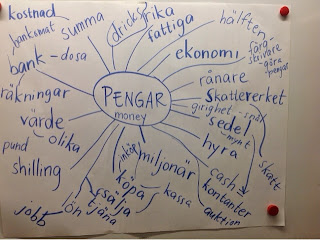 kostnad
banksmat
summa
dricks
rika
fattiga
hälften
ekonomi
färg-
skrivare
göra
pengar
bank - dosa
rånare
räkningar
PENGAR
money
Skatteverket
girighet - spar
sedel
mynt
skatt
värde
olika
pund
shilling
hyra
inköp
miljonär
köpa
sälja
tjäna
kassa
cash
kontanter
auktion
jobb
ön